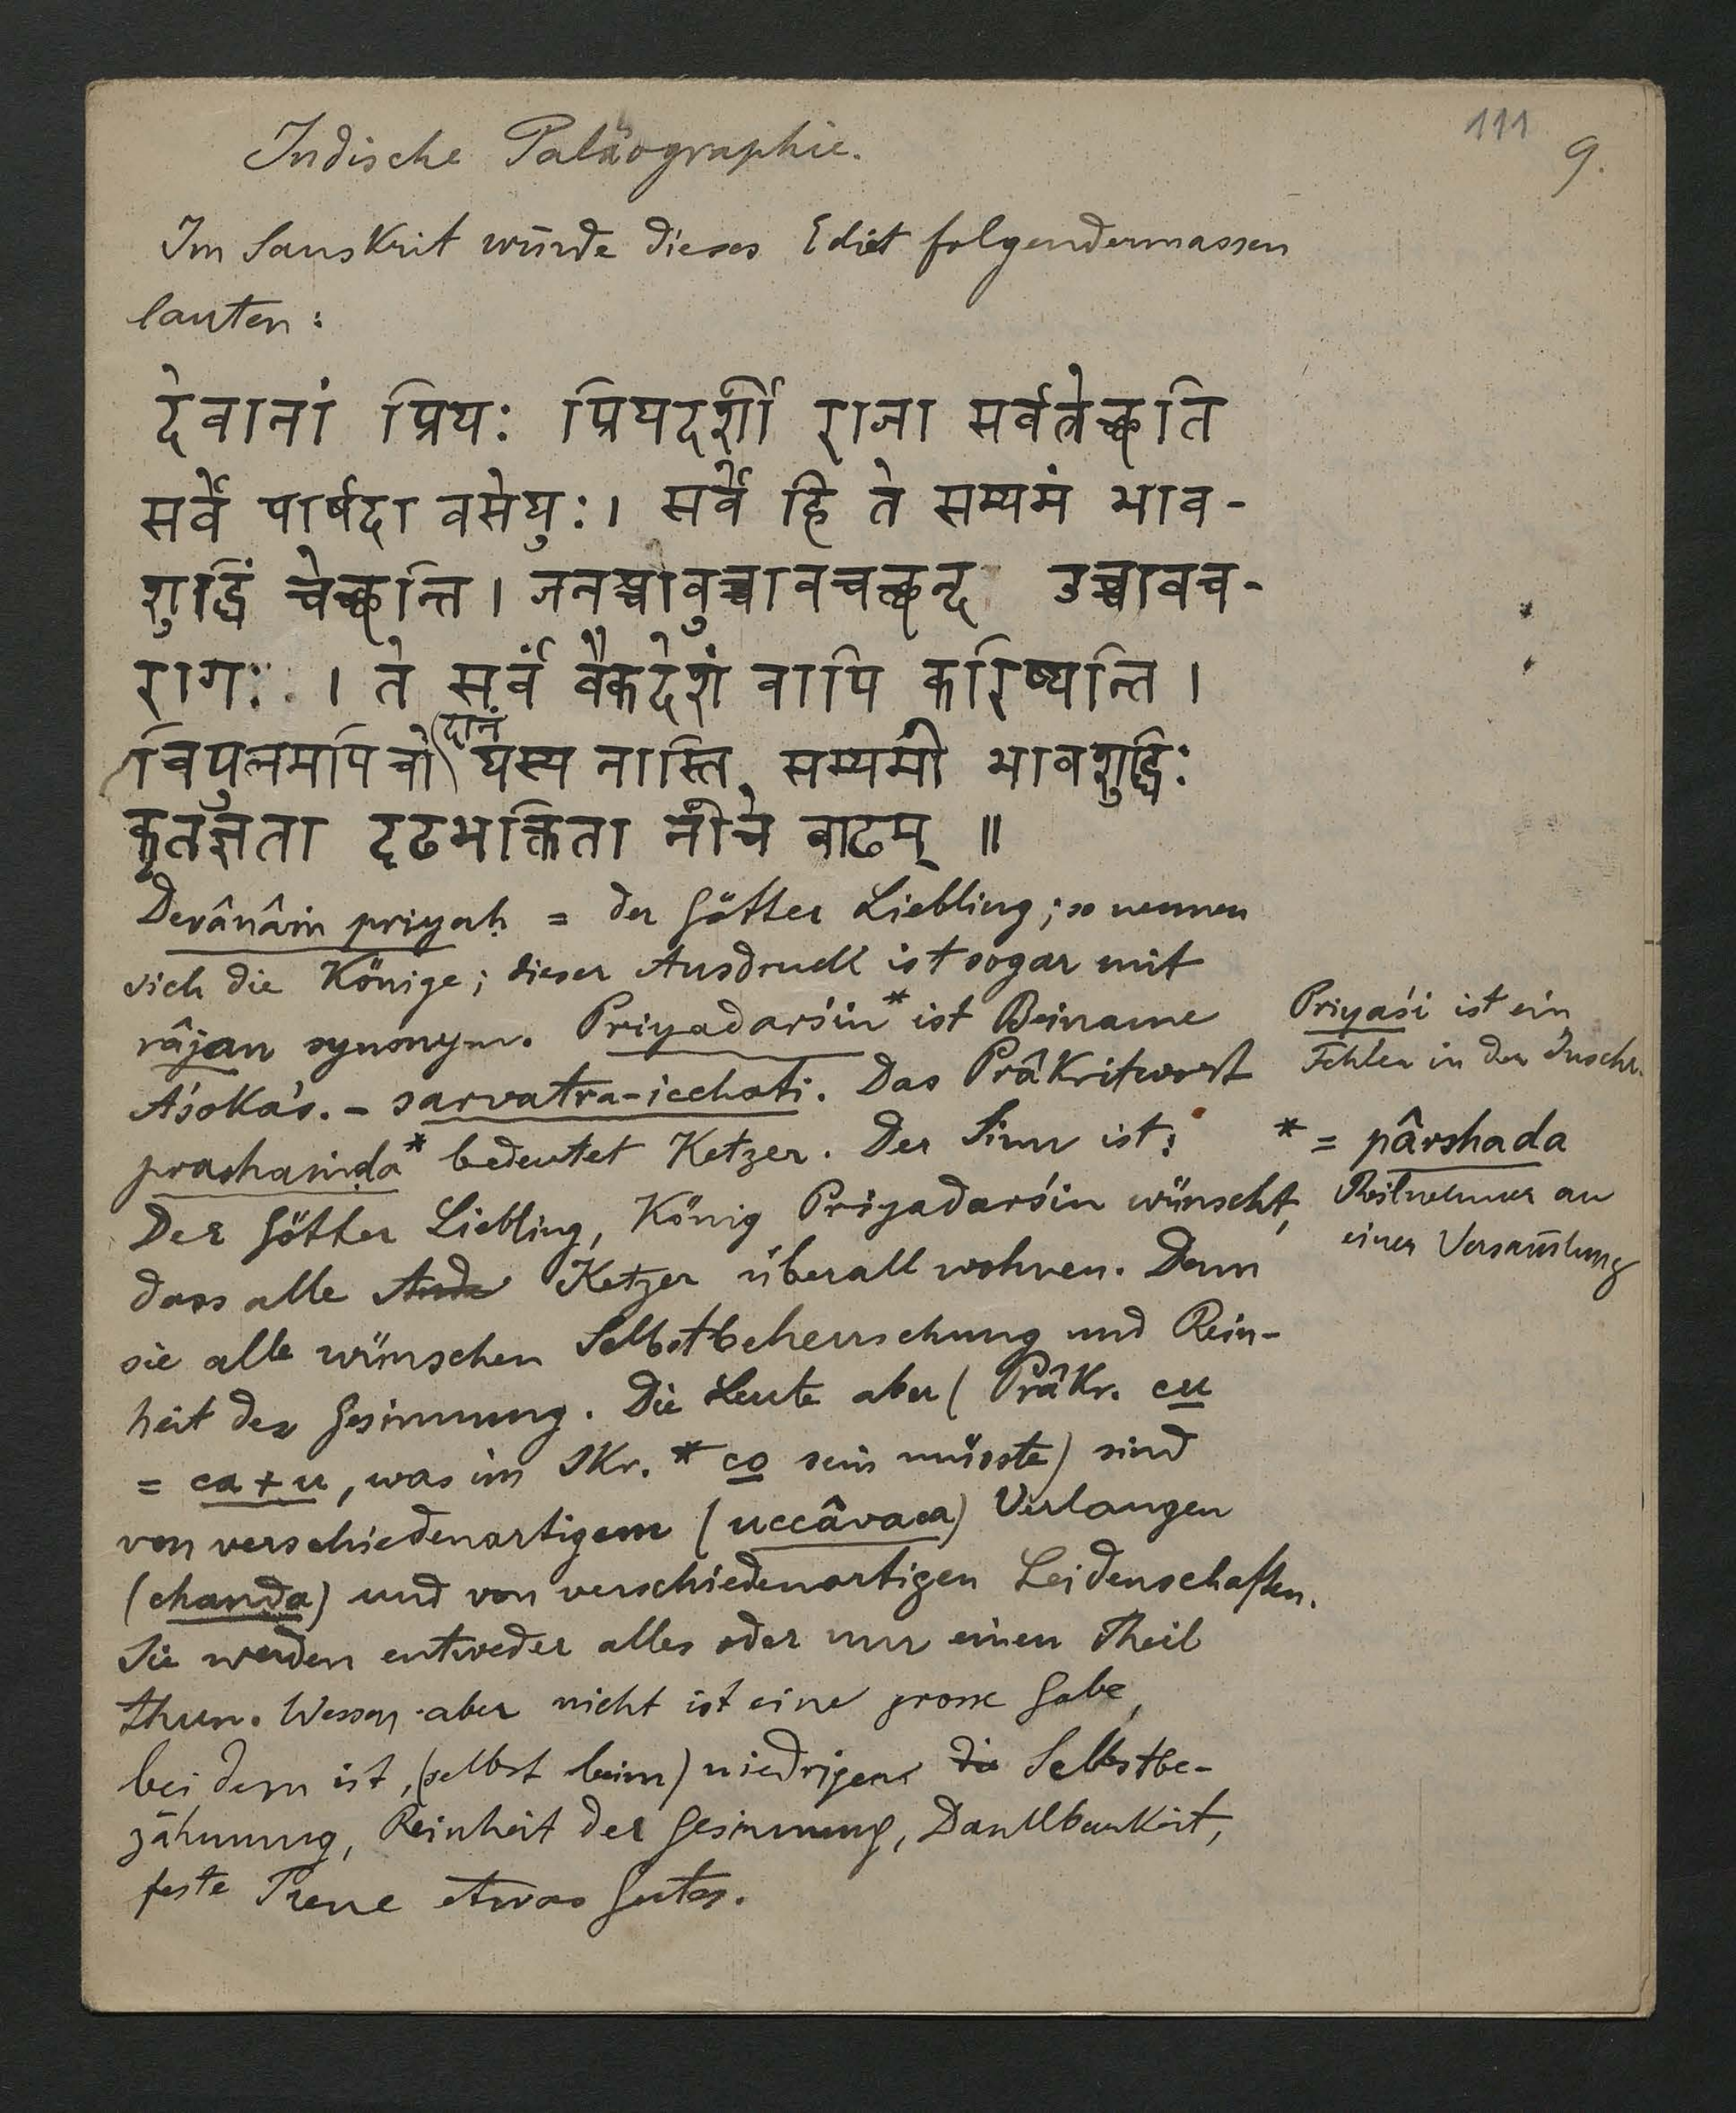 111
9.
Indische Paläographie.
Im Sanskrit würde dieses Edict folgendermassen
lauten:
देवानां प्रियः प्रियदर्शी राजा सर्वत्रेच्छति
सर्वे पार्षदा वसेयुः। सर्वे हि ते सम्यमं भाव-
शुद्धिं चेच्छन्ति। जनश्चोवुच्चावचच्छन्द उच्चावच-
रागः । ते सर्वं वैकदेशं वापि करिष्यन्ति।
विपुलमपि चो (दानं) यस्य नास्ति सम्यमो भावशुद्धिः
कृतज्ञता दृढभक्तिता नीचे वाढम् ॥
Devânâṁ priyaḥ = der Götter Liebling; so nennen
sich die Könige; dieser Ausdruck ist sogar mit
râjan synonym. Priyadarśin* ist Beiname
Aśoka's. - sarvatra-icchati. Das Prâkritwort
prashaṁḍa* bedeutet Ketzer. Der Sinn ist:
Der Götter Liebling, König Priyadarśin wünscht,
dass alle Ketzer überall wohnen. Denn
sie alle wünschen Selbstbeherrschung und Rein-
heit der Gesinnung. Die Leute aber (Prâkr. cu
= ca + u, was im Skr. * co sein müsste) sind
von verschiedenartigem (uccâvaca) Verlangen
(chanda) und von verschiedenartigen Leidenschaften.
Sie werden entweder alles oder nur einen Theil
thun. Wessen aber nicht ist eine grosse Gabe,
bei dem ist, (selbst beim) niedrigen die Selbstbe-
zähmung, Reinheit der Gesinnung, Dankbarkeit,
feste Treue etwas Gutes.
Priyaśi ist ein
Fehler in der Inschr.
* = pârshada
Theilnehmer an
einer Versam̄lung